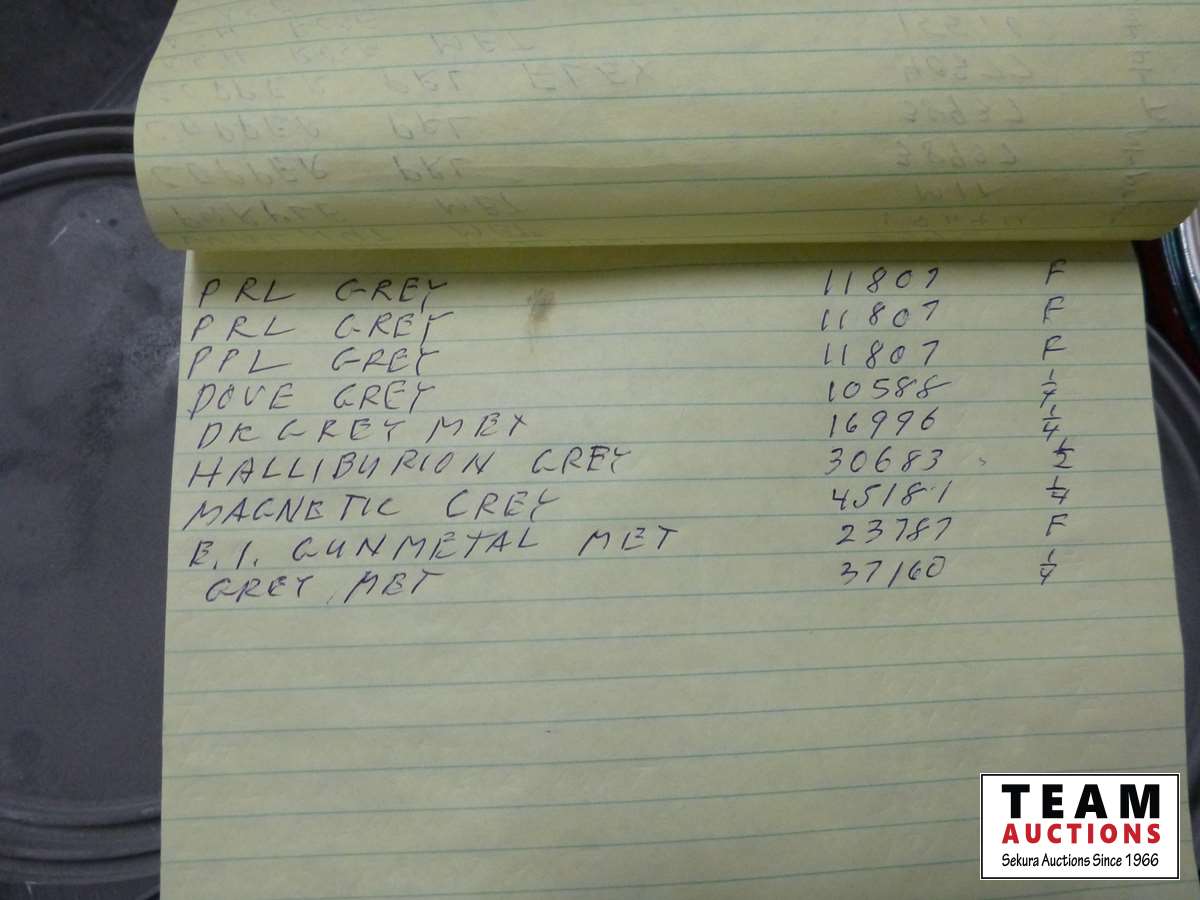 PRL GREY 11807 F
PRL GREY 11807 F
PPL GREY 11807 F
DOVE GREY 10588 1/4
DK GREY MET 16996 1/4
HALLIBURION GREY 30683 1/2
MAGNETIC GREY 45181 1/4
E.I. GUNMETAL MET 23787 F
GREY MET 37160 1/4
TEAM
AUCTIONS
Sekura Auctions Since 1966